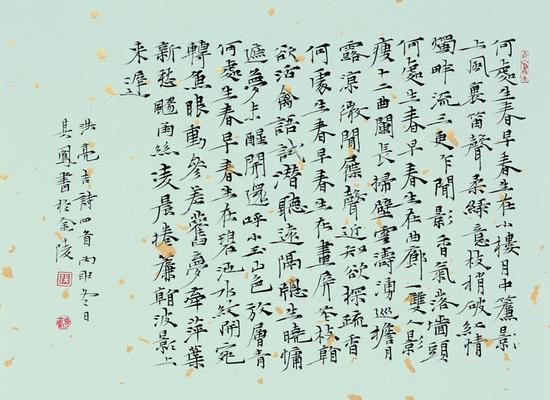 何處生春早春生在小樓月中簾影
上風裏笛聲柔繞意枝梢破紅情
燭畔流三更乍聞影香氣落墻頭
何處生春早春生在曲廊一雙人影
瘦十二曲闌長掃壁雲濤湧巡檐月
露涼微聞屧聲近知欲探疏香
何處生春早春生在畫屏冬枝翰
欲活禽語試潛聽遠隔窗生曉慵
遮夢未醒開還呼小玉山色放層青
何處生春早春生在碧池水紋開宛
轉魚眼動參差舊夢牽萍葉
新愁颺雨絲淩晨捲簾翰波影上
來遲
洪亮吉詩四首丙申冬日
其鳳書於金陵